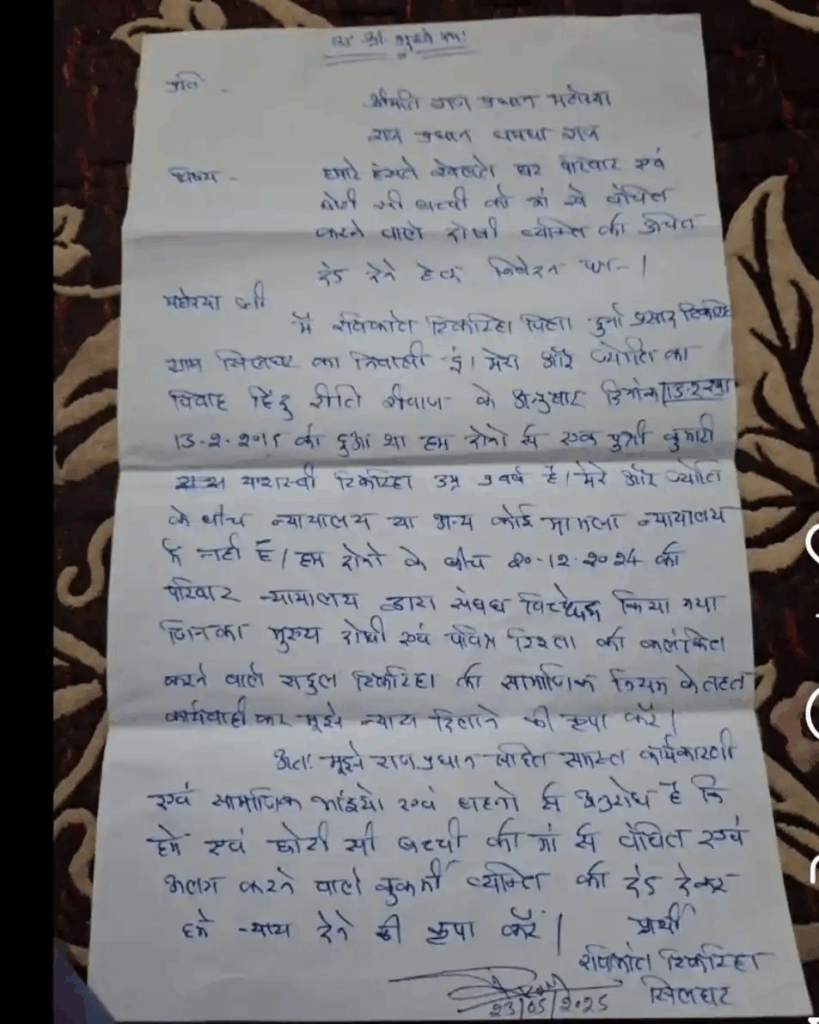 प्रति -
श्रीमति राज प्रधान महोदया
राज प्रधान धमधा राज
विषय - हमारे हंसते खेलते घर परिवार एवं
छोटी सी बच्ची को मां से वंचित
करने वाले दोषी व्यक्ति को उचित
दंड देने हेतु निवेदन
महोदया जी
मैं रविकांत टिकरिहा पिता दुर्गा प्रसाद टिकरिहा
ग्राम सिलघट का निवासी हूं। मेरा और ज्योति का
विवाह हिंदु रीति रीवाज के अनुसार दिनांक
13-2-2015 को हुआ था हम दोनो से एक पुत्री कुमारी
यशस्वी टिकरिहा उम्र वर्ष है। मेरे और ज्योति
के बीच न्यायालय या अन्य कोई मामला न्यायालय
में नहीं है। हम दोनो के बीच 20-12-2024 को
परिवार न्यायालय द्वारा संबंध विच्छेद किया गया
जिनका मुख्य दोषी एवं पवित्र रिश्ता को कलंकित
करने वाले राहुल टिकरिहा को सामाजिक नियम के तहत
कार्यवाही कर मुझे न्याय दिलाने की कृपा करें।
अतः मुझे राज प्रधान सहित समस्त कार्यकारणी
एवं सामाजिक भाईयो एवं बहनो से अनुरोध है कि
हमे एवं छोटी सी बच्ची को मां से वंचित एवं
अलग करने वाले कुकर्मी व्यक्ति को दंड देकर
हमे न्याय देने की कृपा करें। प्रार्थी
रविकांत टिकरिहा
23/05/2025 सिलघट